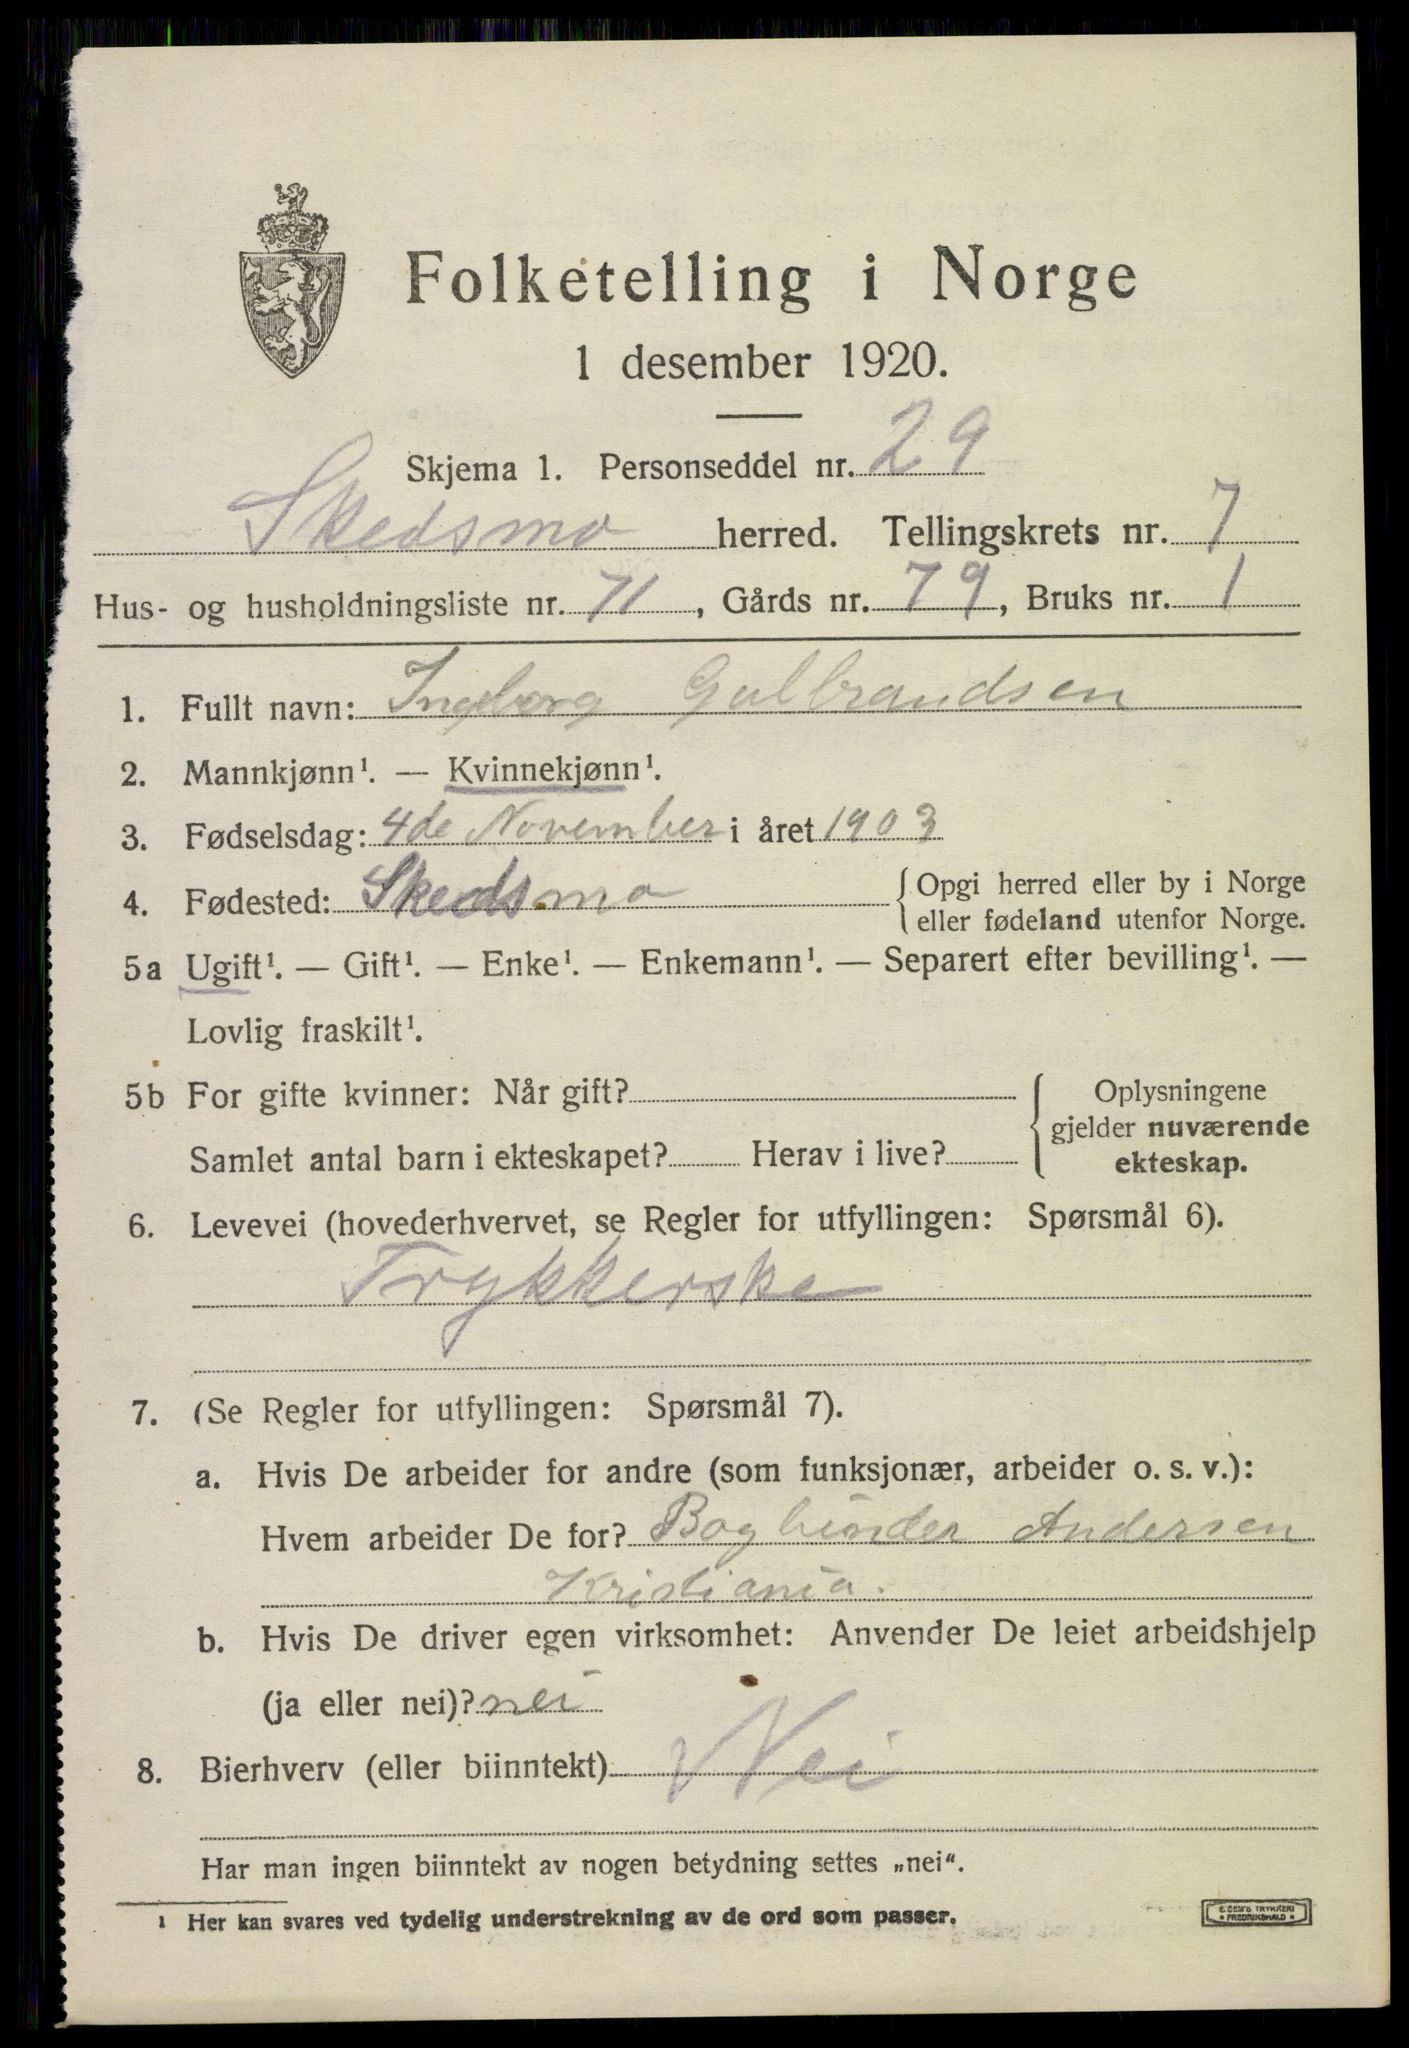 Folketelling i Norge
1 desember 1920.
Skjema 1. Personseddel nr. 29
Skedsmo herred. Tellingskrets nr. 7
Hus- og husholdningsliste nr. 71, Gårds nr. 79, Bruks nr. 1
1. Fullt navn: Ingeborg Gulbrandsen
2. Mannkjønn¹. — Kvinnekjønn¹.
3. Fødselsdag: 4de November i året 1903
4. Fødested: Skedsmo {Opgi herred eller by i Norge
eller fødeland utenfor Norge.
5a Ugift¹. — Gift¹. — Enke¹. — Enkemann¹. — Separert efter bevilling¹. —
Lovlig fraskilt¹.
5b For gifte kvinner: Når gift?
Samlet antal barn i ekteskapet? Herav i live?
{Oplysningene
gjelder nuværende
ekteskap.
6. Levevei (hovederhvervet, se Regler for utfyllingen: Spørsmål 6).
Trykkerske
7. (Se Regler for utfyllingen: Spørsmål 7).
a. Hvis De arbeider for andre (som funksjonær, arbeider o. s. v.):
Hvem arbeider De for? Bogbinder Andersen
Kristiania.
b. Hvis De driver egen virksomhet: Anvender De leiet arbeidshjelp
(ja eller nei)? nei
8. Bierhverv (eller biinntekt) Nei
Har man ingen biinntekt av nogen betydning settes „nei“.
¹ Her kan svares ved tydelig understrekning av de ord som passer.
E. SEM'S TRYKKERI
* FREDRIKSHALD *